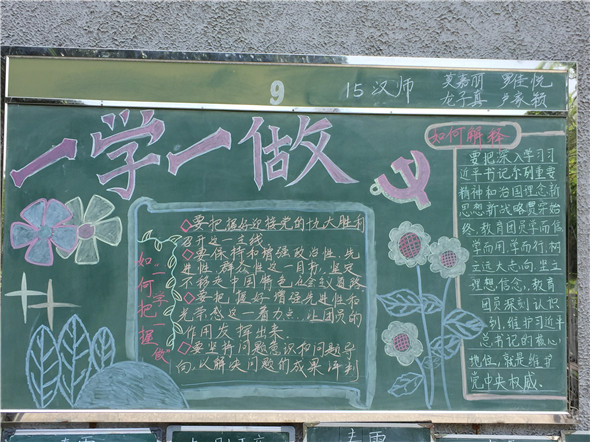 9
15汉师
莫嘉丽 罗佳悦
龙子真 卢家颖
一学一做
如何把握
"一学一做"
◇要把握好迎接党的十九大胜利
召开这一主线
◇要保持和增强政治性、先
进性、群众性这一目标,坚定
不移走中国特色社会主义道路
◇要把握好增强先进性和
光荣感这一着力点,让团员的
作用发挥出来.
◇要坚持问题意识和问题导
向,以解决问题的成果评判
如何解释
要把深入学习习
近平书记系列重要
精神和治国理念新
思想新战略贯穿始
终,教育团员学而信,
学而用,学而行,树
立远大志向,坚立
理想信念,教育
团员深刻认识
到,维护习近平
总书记的核心
地位,就是维护
党中央权威、